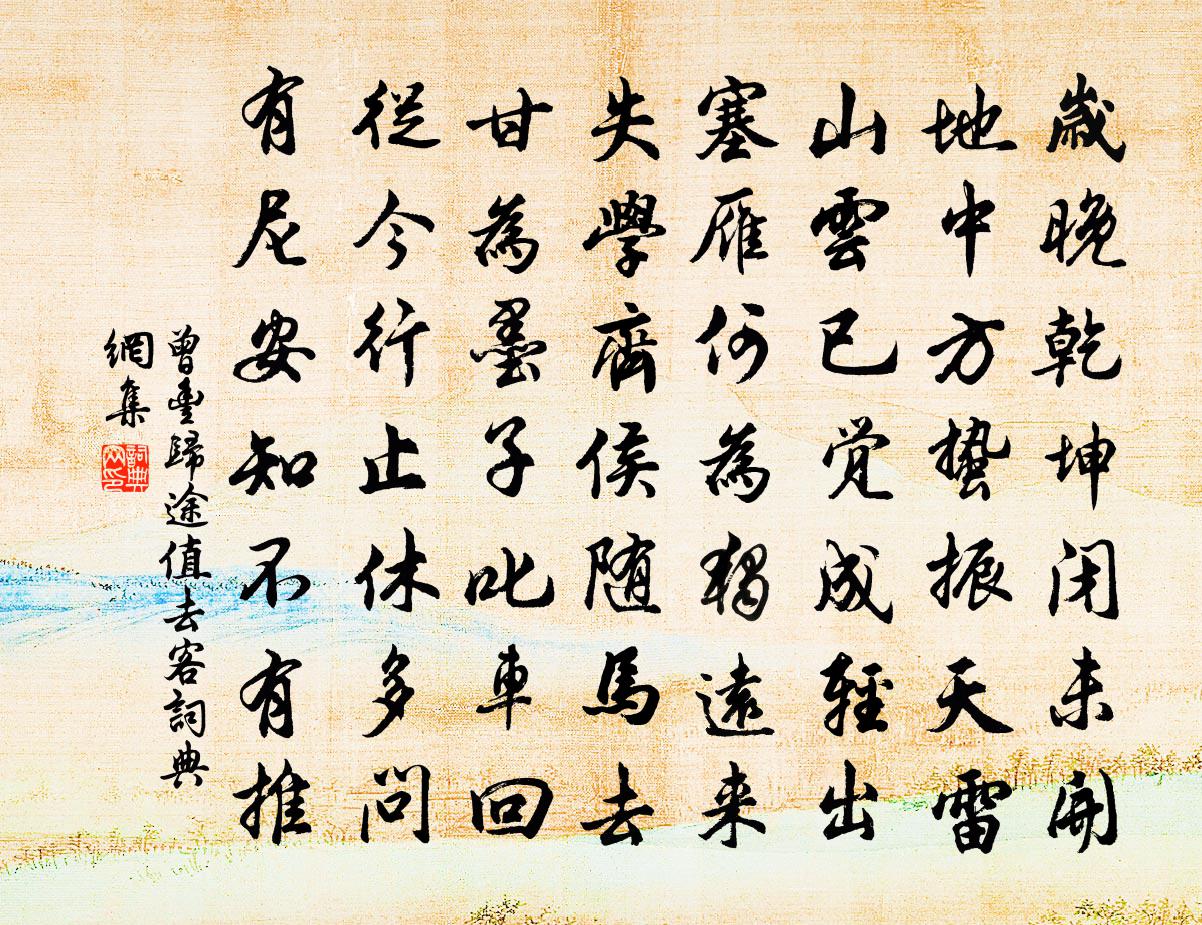 歲晚乾坤闭未開
地中方蛰振天雷
山雲已觉成輕出
塞雁何為獨遠来
失學齊侯随馬去
甘為墨子叱車回
從今行止休多问
有尼安知不有推
曾豊歸途值去客詞典
網集
詞典